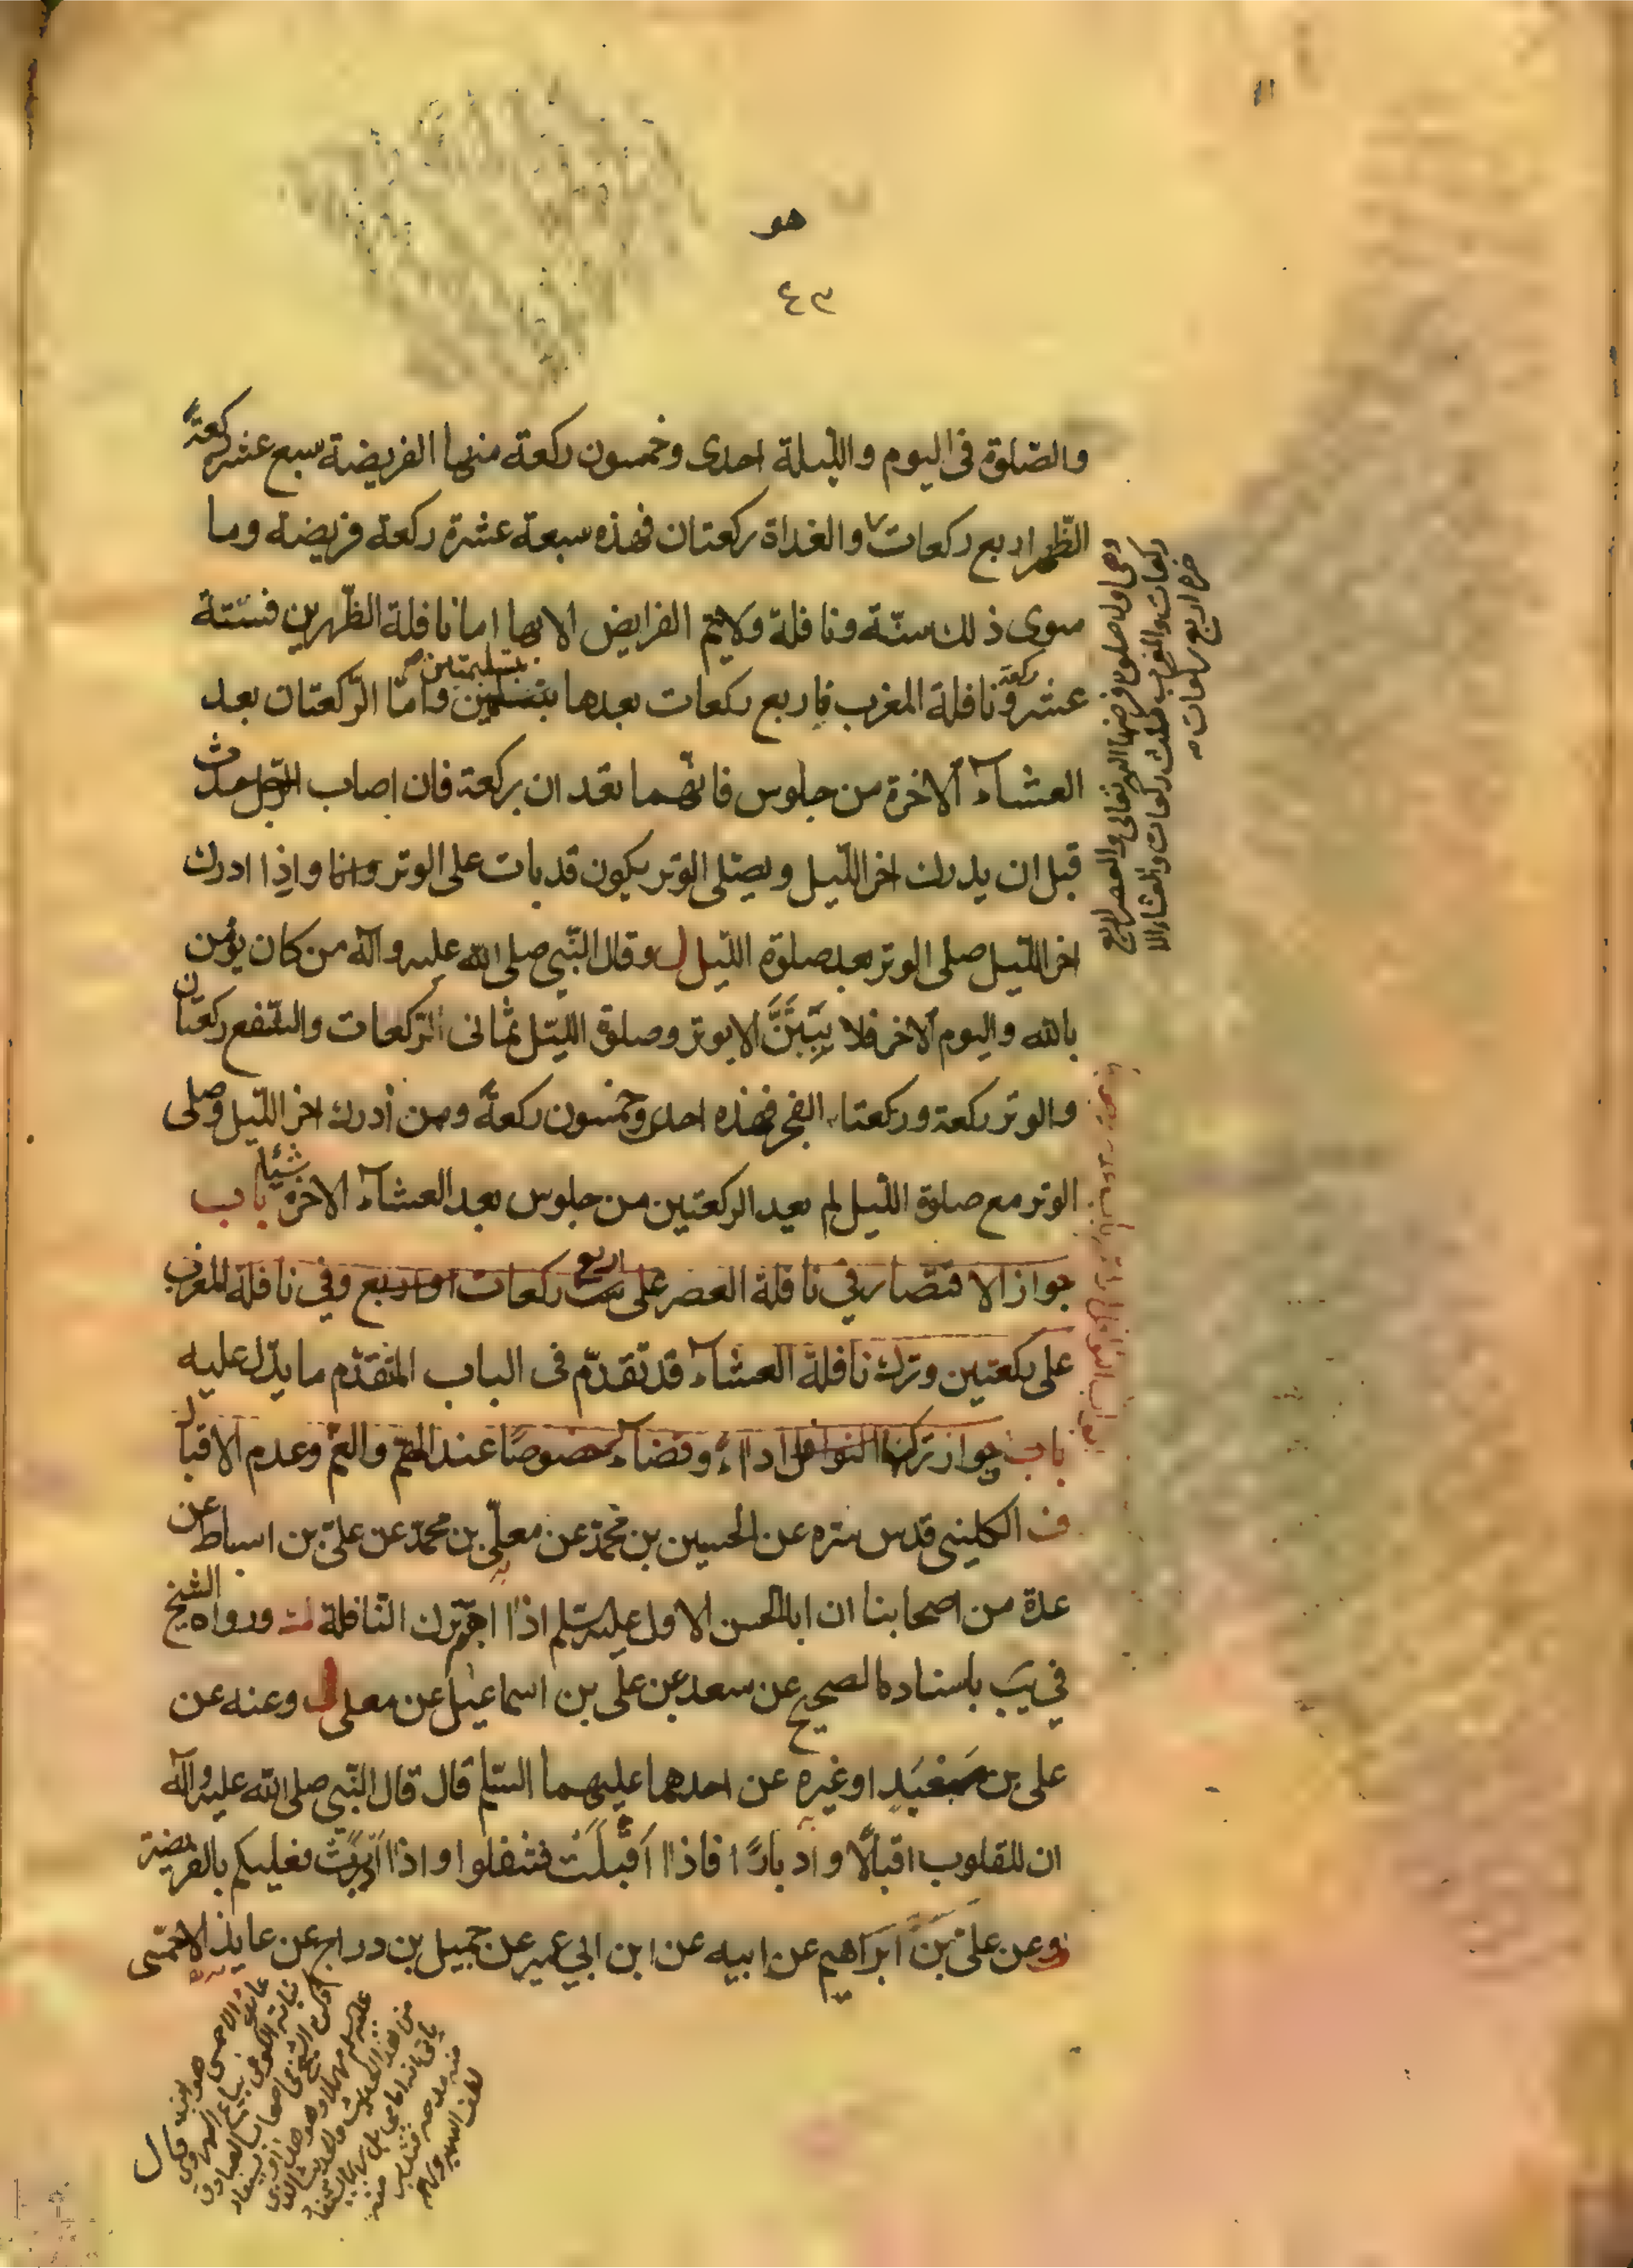 هو
٤٣
والصّلوة في اليوم واللّيلة احدى وخمسون ركعة منها الفريضة سبع عشر ركعةً
الظّهر اربع ركعات والغداة ركعتان فهذه سبعة عشرة ركعة فريضة وما
سوى ذلك سنّة ونافلة ولا يتم الفرايض الا بها اما نافلة الظّهرين فستّة
عشر ركعة ونافلة المغرب فاربع ركعات بعدها بتسليمتين وامّا الرّكعتان بعد
العشاۤء الاخرة من جلوس فانّهما تعدان بركعة فان اصاب الرّجل حدث
قبل ان يدرك اخر اللّيل ويصلّي الوتر يكون قد بات على الوتر واذا ادرك
اخر اللّيل صلى الوتر بعد صلوة اللّيل وقال النّبي صلى الله عليه وآله من كان يؤمن
بالله واليوم الاخر فلا يبيتنّ الا بوتر وصلوة اللّيل ثماني الرّكعات والشّفع ركعتان
والوتر ركعة وركعتا الفجر فهذه احدى وخمسون ركعةً ومن أدرك اخر اللّيل وصلى
الوتر مع صلوة اللّيل لم يعد الركعتين من جلوس بعد العشاۤء الاخرة شيئا باب
جواز الاقتصار في نافلة العصر على ست اربع ركعات او اربع وفي نافلة المغرب
على ركعتين وترك نافلة العشاۤء قد تقدّم فى الباب المتقدّم ما يدّل عليه
باب جواز ترك النوافل اداءً وقضاۤء خصوصًا عند الهمّ والغمّ وعدم الاقبال
ف الكليني قدس سّره عن الحسين بن محمّد عن معلّى بن محمّد عن علىّ بن اسباط عن
عدة من اصحابنا ان ابا الحسن الاول عليه السّلم اذا اهتمّ ترك النّافلة ورواه الشيخ
في يَب باسناده الصحيح عن سعد عن على بن اسماعيل عن معلى وعنه عن
على بن معْبَدٍ او غيره عن احدهما عليهما السّلم قال قال النّبي صلى الله عليه وآله
ان للقلوب اقبالًا وادبارًا فاذا اَقْبلَتْ فتنفلوا واذا اَدْبَرَتْ فعليكم بالفريضة
وعن علىّ بنَ ابراهيم عن ابيه عن ابن ابي عمير عن جميل بن دراج عن عايذ الاحمّسى
قال
وهى اول صلوة فرضها الله تعالى والعصر اربع
ركعات والمغرب ثلث ركعات والعشاء الا
خرة اربع ركعات
عائذ الاحمسى هو ابن
نباتة الكوفى بياع الهروى
ذكره الشيخ فى اصحاب الصادق
عليه السلم مهملا
من هذا الحديث والحديث الذى